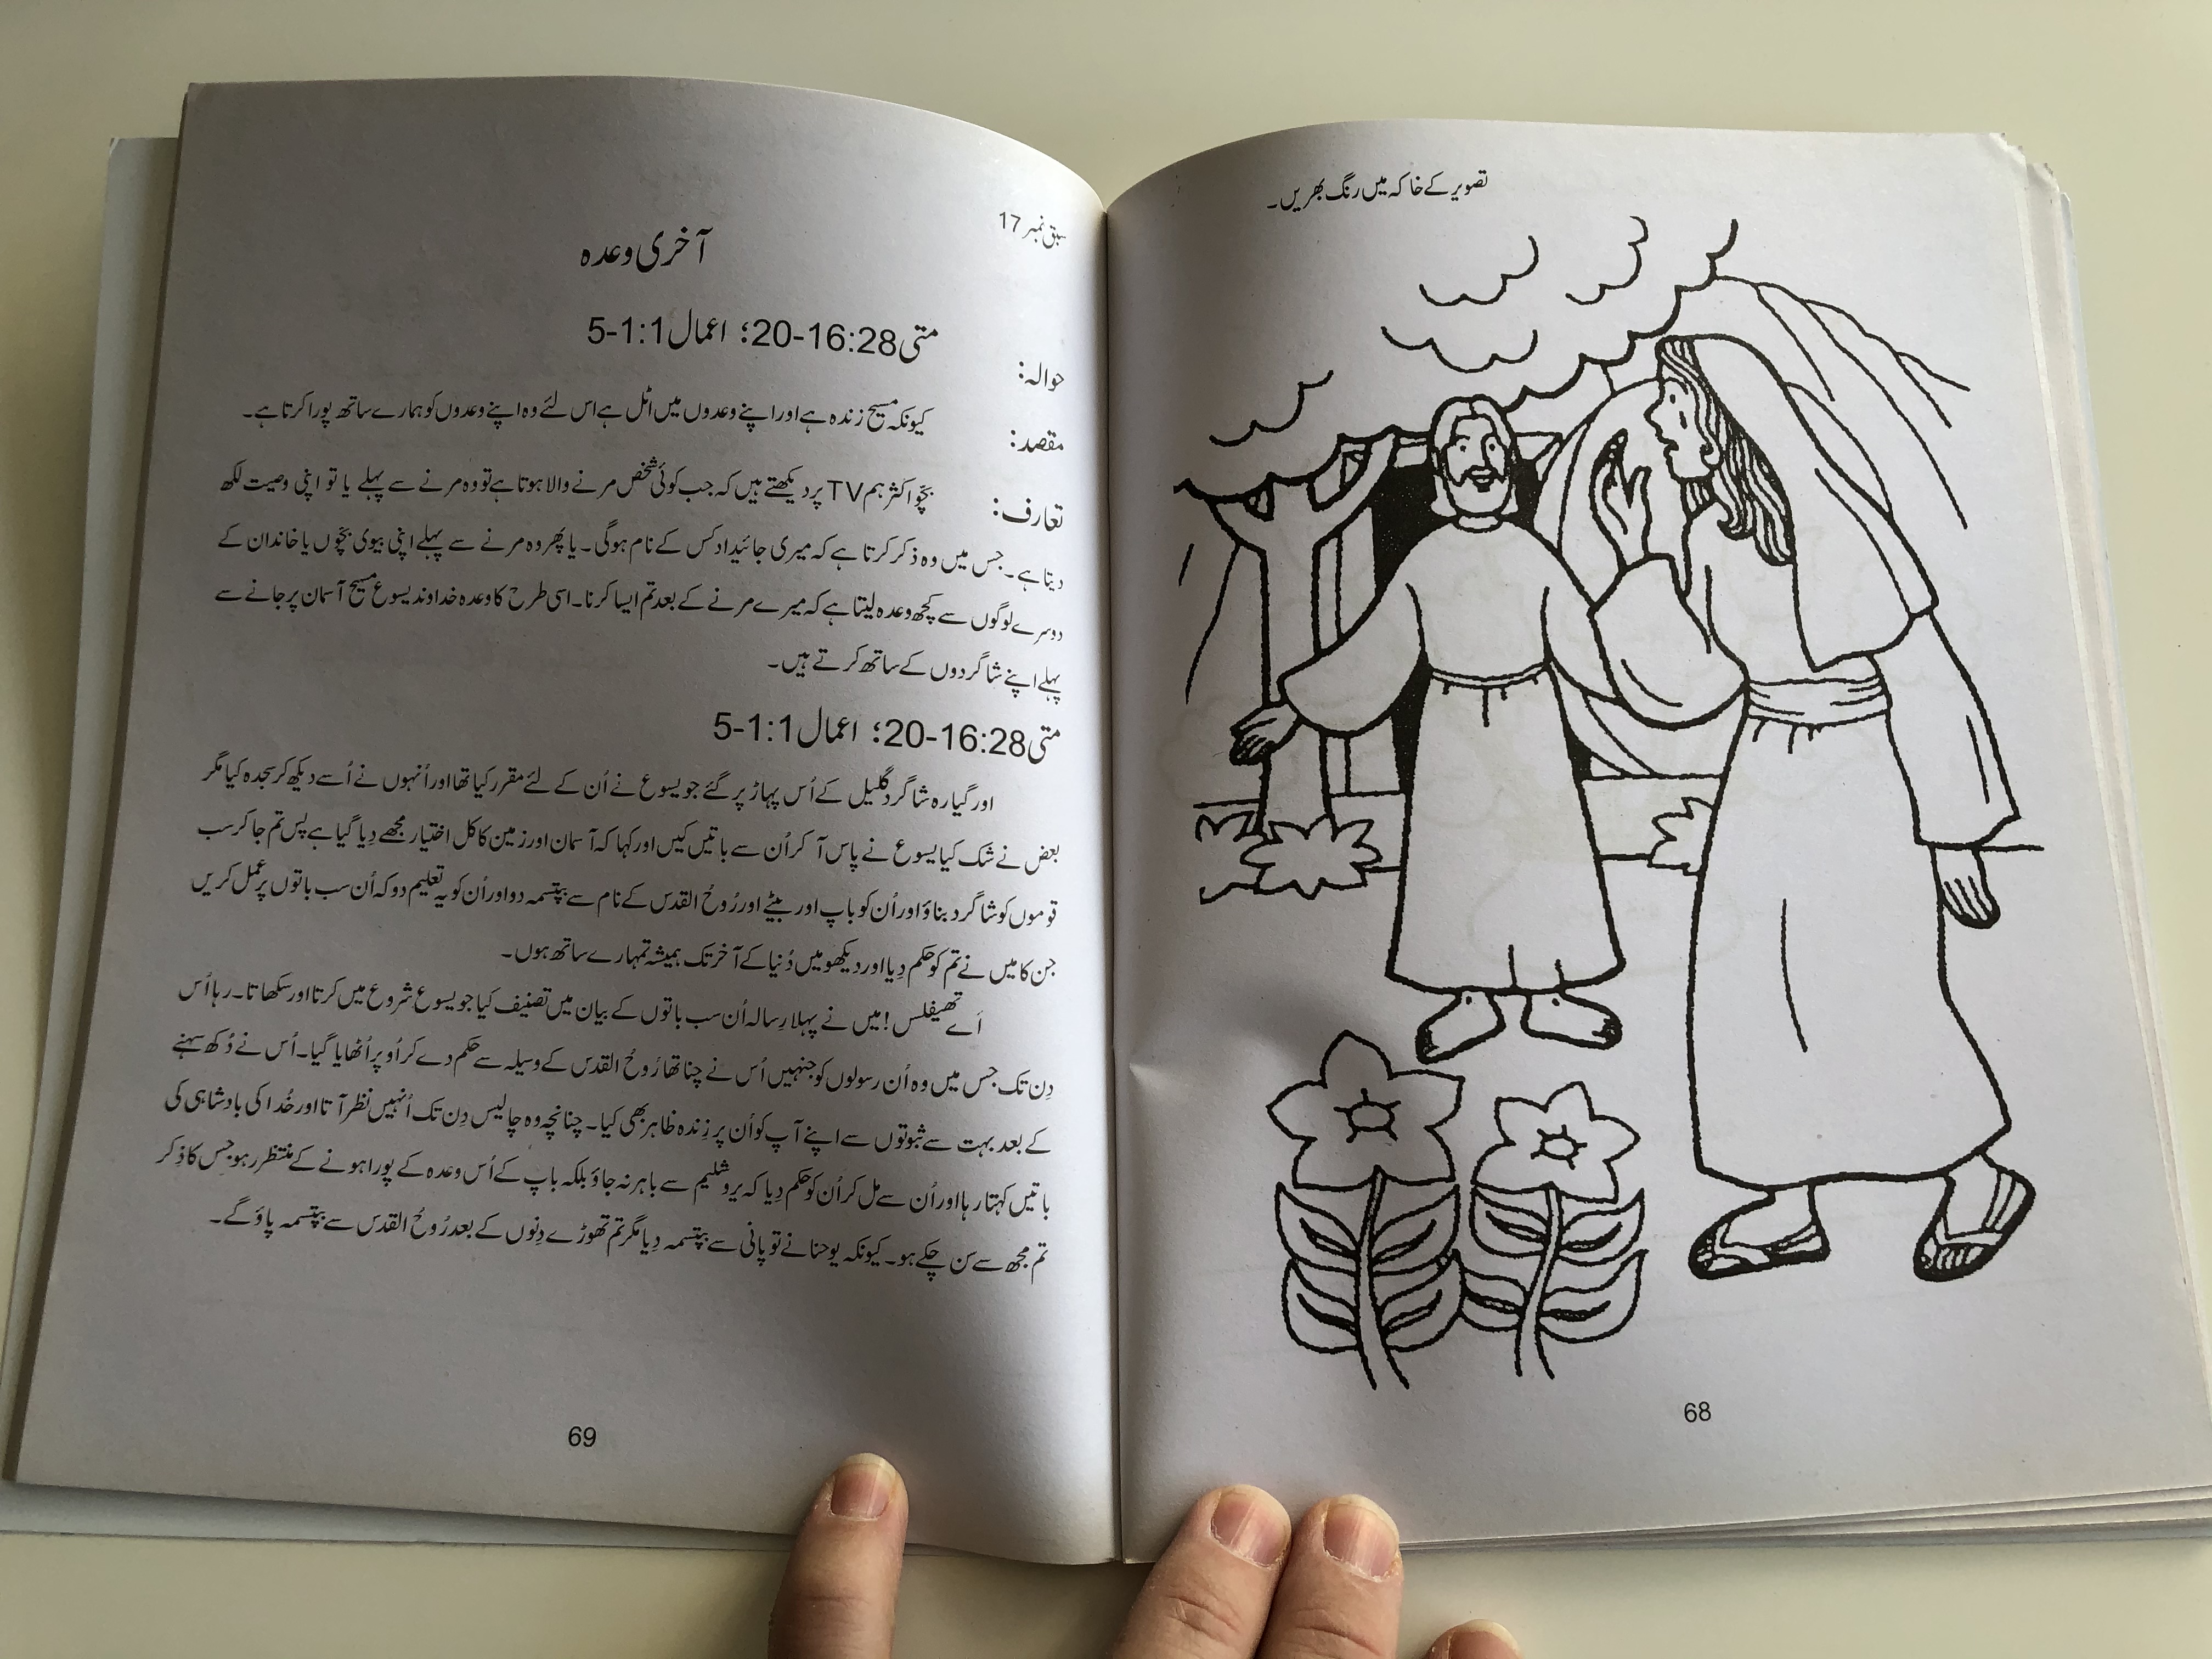 تصویر کے خاکہ میں رنگ بھریں۔
68
سبق نمبر 17
آخری وعدہ
حوالہ: متی 16:28-20؛ اعمال 1:1-5
مقصد: کیونکہ مسیح زندہ ہے اور اپنے وعدوں میں اٹل ہے اس لئے وہ اپنے وعدوں کو ہمارے ساتھ پورا کرتا ہے۔
تعارف: بچّو اکثر ہم TV پر دیکھتے ہیں کہ جب کوئی شخص مرنے والا ہوتا ہے تو وہ مرنے سے پہلے یا تو اپنی وصیت لکھ
دیتا ہے۔ جس میں وہ ذکر کرتا ہے کہ میری جائیداد کس کے نام ہوگی۔ یا پھر وہ مرنے سے پہلے اپنی بیوی بچّوں یا خاندان کے
دوسرے لوگوں سے کچھ وعدہ لیتا ہے کہ میرے مرنے کے بعد تم ایسا کرنا۔ اسی طرح کا وعدہ خداوند یسوع مسیح آسمان پر جانے سے
پہلے اپنے شاگردوں کے ساتھ کرتے ہیں۔
متی 16:28-20؛ اعمال 1:1-5
اور گیارہ شاگرد گلیل کے اُس پہاڑ پر گئے جو یسوع نے اُن کے لئے مقرر کیا تھا اور اُنہوں نے اُسے دیکھ کر سجدہ کیا مگر
بعض نے شک کیا یسوع نے پاس آ کر اُن سے باتیں کیں اور کہا کہ آسمان اور زمین کا کل اختیار مجھے دِیا گیا ہے پس تم جا کر سب
قوموں کو شاگرد بناؤ اور اُن کو باپ اور بیٹے اور رُوحُ القدس کے نام سے بپتسمہ دو اور اُن کو یہ تعلیم دو کہ اُن سب باتوں پر عمل کریں
جن کا میں نے تم کو حکم دِیا اور دیکھو میں دُنیا کے آخر تک ہمیشہ تمہارے ساتھ ہوں۔
اَے تھیفلس! میں نے پہلا رِسالہ اُن سب باتوں کے بیان میں تصنیف کیا جو یسوع شروع میں کرتا اور سکھاتا۔ رہا اُس
دِن تک جس میں وہ اُن رسولوں کو جنہیں اُس نے چنا تھا رُوحُ القدس کے وسیلہ سے حکم دے کر اُوپر اُٹھایا گیا۔ اُس نے دُکھ سہنے
کے بعد بہت سے ثبوتوں سے اپنے آپ کو اُن پر زِندہ ظاہر بھی کیا۔ چنانچہ وہ چالیس دِن تک اُنہیں نظر آتا اور خُدا کی بادشاہی کی
باتیں کہتا رہا اور اُن سے مل کر اُن کو حکم دِیا کہ یروشلیم سے باہر نہ جاؤ بلکہ باپ کے اُس وعدہ کے پورا ہونے کے منتظر رہو جس کا ذِکر
تم مجھ سے سن چکے ہو۔ کیونکہ یوحنا نے تو پانی سے بپتسمہ دِیا مگر تم تھوڑے دِنوں کے بعد رُوحُ القدس سے بپتسمہ پاؤ گے۔
69